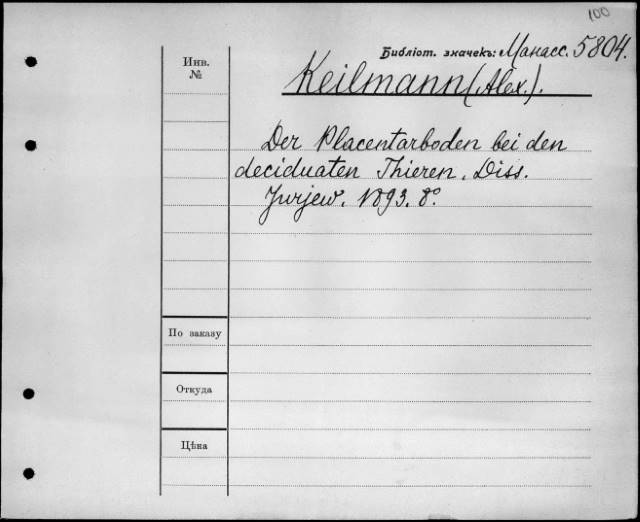 100
Библіот. значекъ: Манасс. 5804.
Инв.
№
Keilmann (Alex.).
Der Placentarboden bei den
deciduaten Thieren. Diss.
Jurjew. 1893. 8º.
По заказу
Откуда
Цѣна